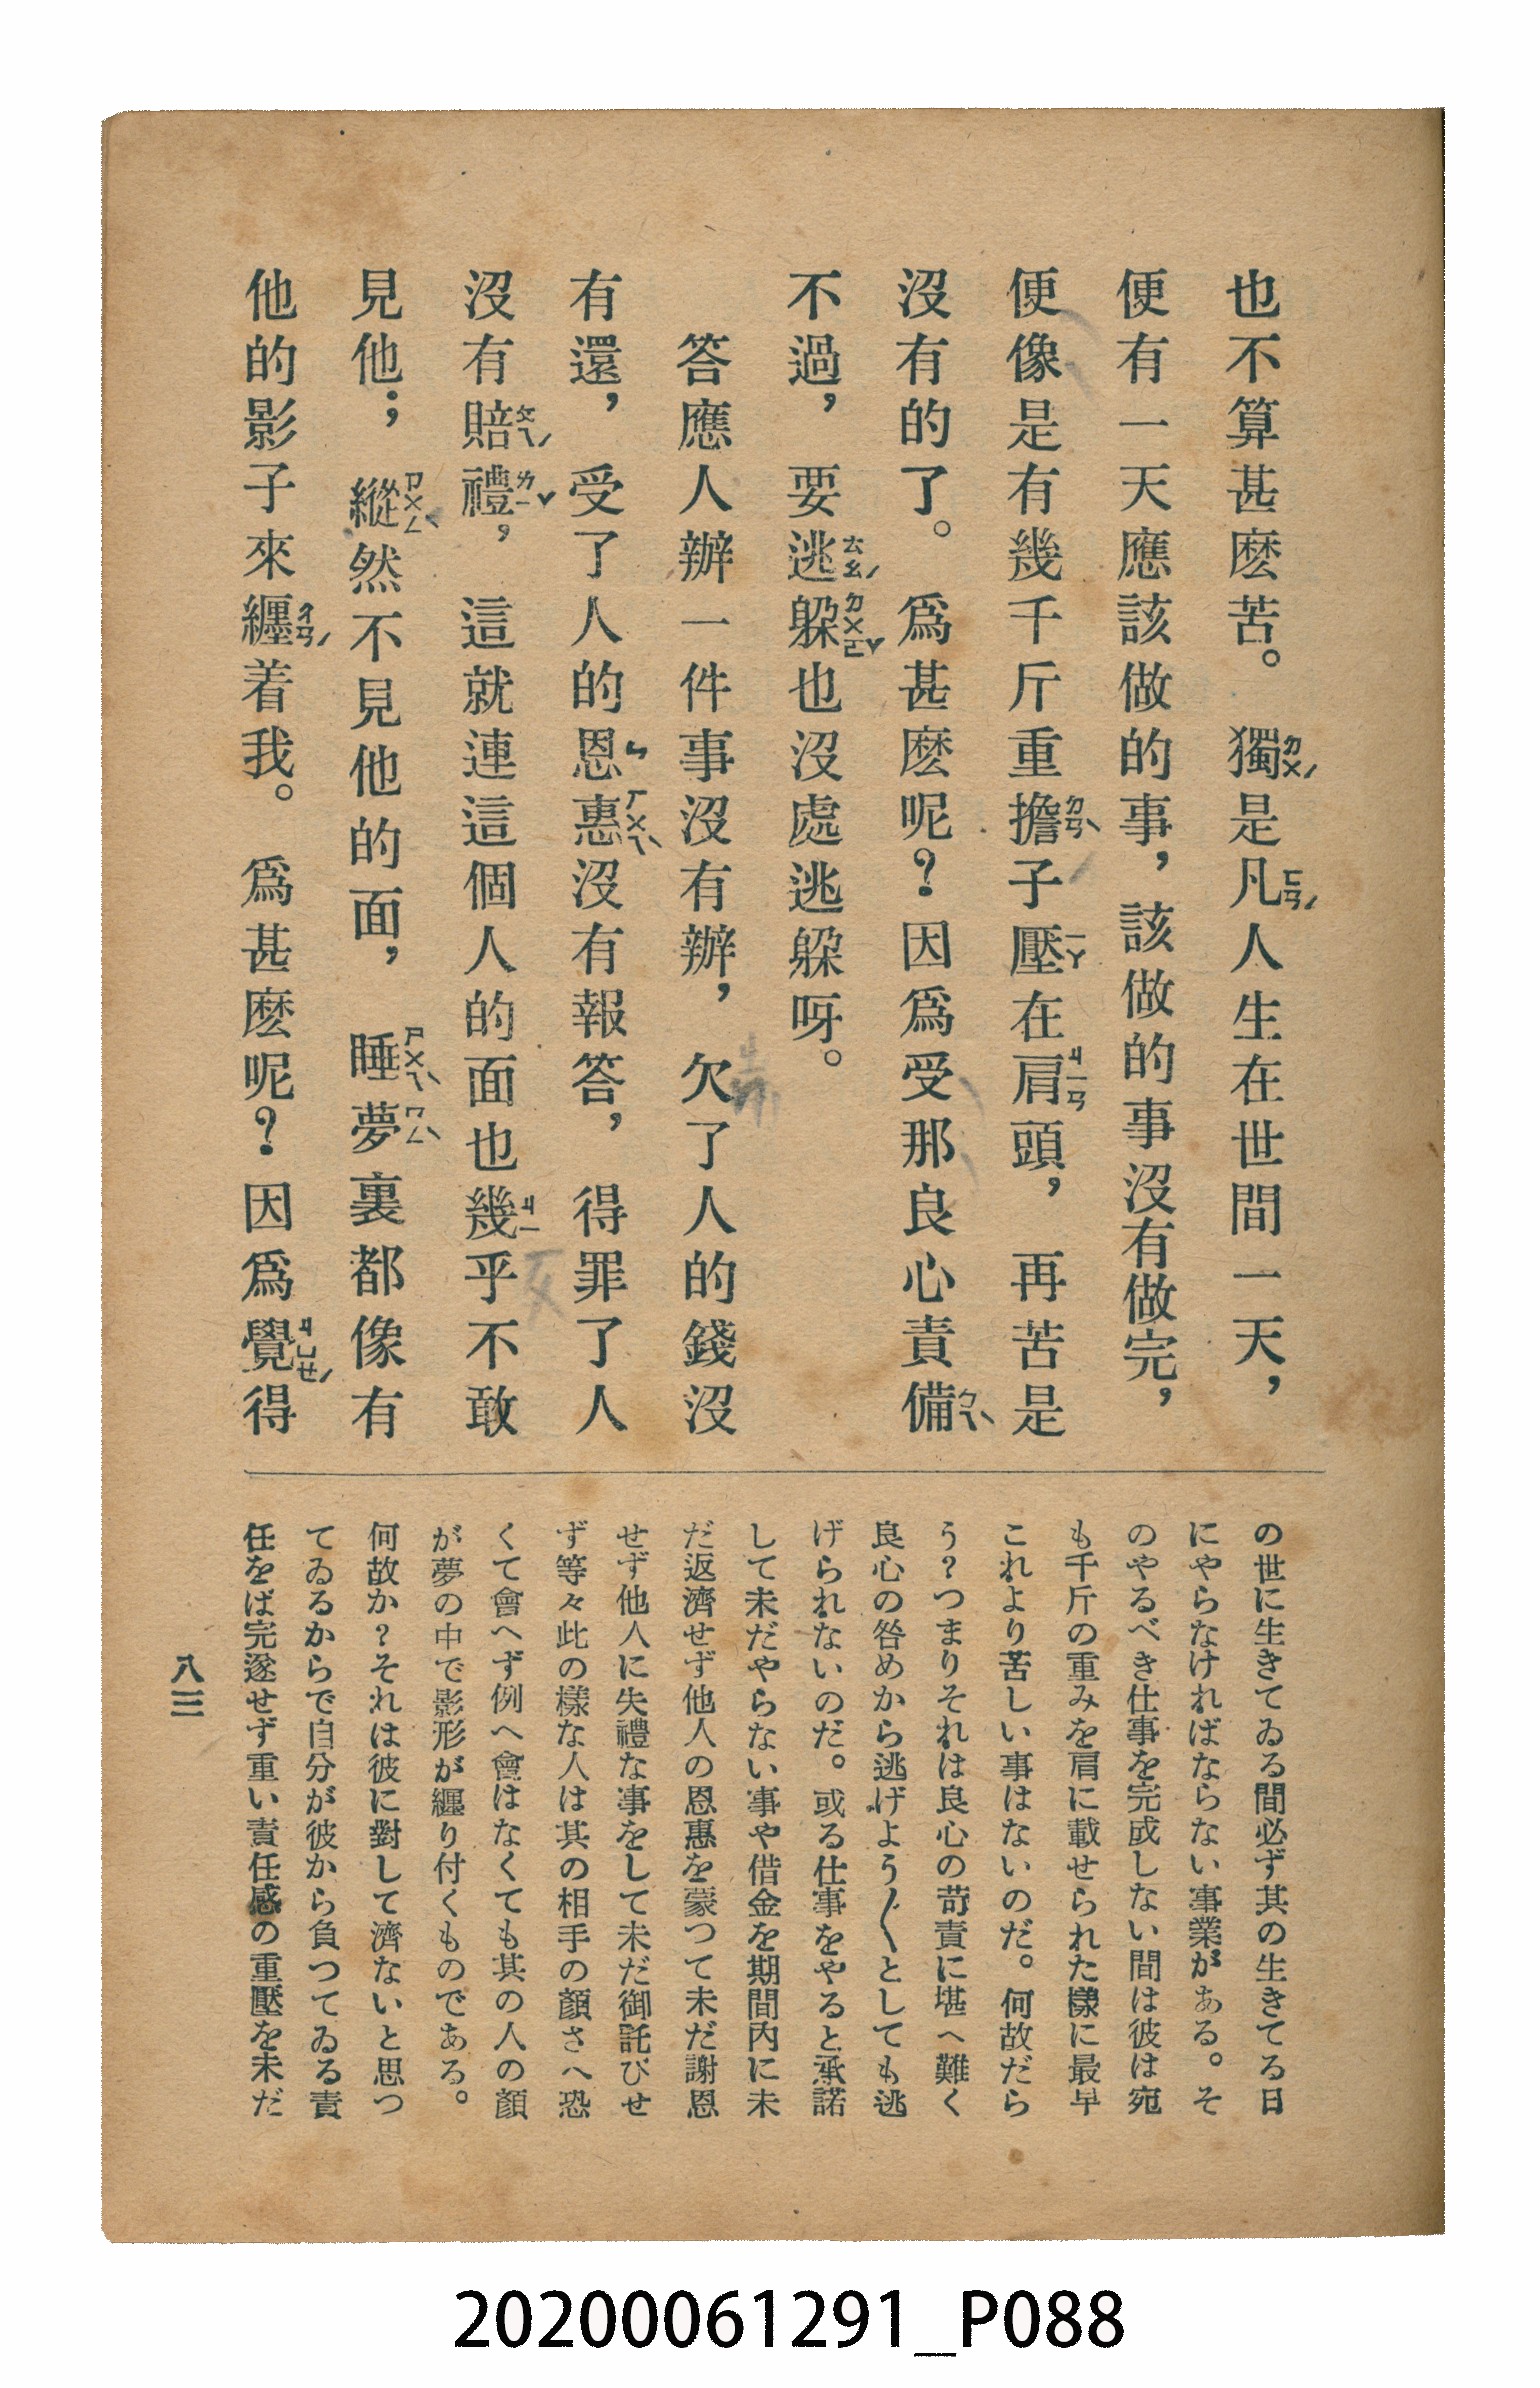 也不算甚麽苦。獨ㄉㄨˊ是凡ㄈㄢˊ人生在世間一天，
便有一天應該做的事，該做的事沒有做完，
便像是有幾千斤重擔ㄉㄢˋ子壓ㄧㄚ在肩ㄐㄧㄢ頭，再苦是
沒有的了。爲甚麽呢？因爲受那良心責備ㄅㄟˋ
不過，要逃ㄊㄠˊ躱ㄉㄨㄛˇ也沒處逃躱呀。
答應人辦一件事沒有辦，欠了人的錢沒
有還，受了人的恩ㄣ惠ㄏㄨㄟˋ沒有報答，得罪了人
沒有賠ㄆㄟˊ禮ㄌㄧˇ，這就連這個人的面也幾ㄐㄧ乎不敢
見他；縱ㄗㄨㄥˋ然不見他的面，睡ㄕㄨㄟˋ夢ㄇㄥˋ裏都像有
他的影子來纏ㄔㄢˊ着我。爲甚麽呢？因爲覺ㄐㄩㄝˊ得
の世に生きてゐる間必ず其の生きてる日
にやらなければならない事業がある。そ
のやるべき仕事を完成しない間は彼は宛
も千斤の重みを肩に載せられた樣に最早
これより苦しい事はないのだ。何故だら
う？つまりそれは良心の苛責に堪へ難く
良心の咎めから逃げよう〱としても逃
げられないのだ。或る仕事をやると承諾
して未だやらない事や借金を期間內に未
だ返濟せず他人の恩惠を蒙つて未だ謝恩
せず他人に失禮な事をして未だ御託びせ
ず等々此の樣な人は其の相手の顏さへ恐
くて會へず例へ會はなくても其の人の顏
が夢の中で影形が纒り付くものである。
何故か？それは彼に對して濟ないと思つ
てゐるからで自分が彼から負つてゐる責
任をば完遂せず重い責任感の重壓を未だ
八三
20200061291_P088